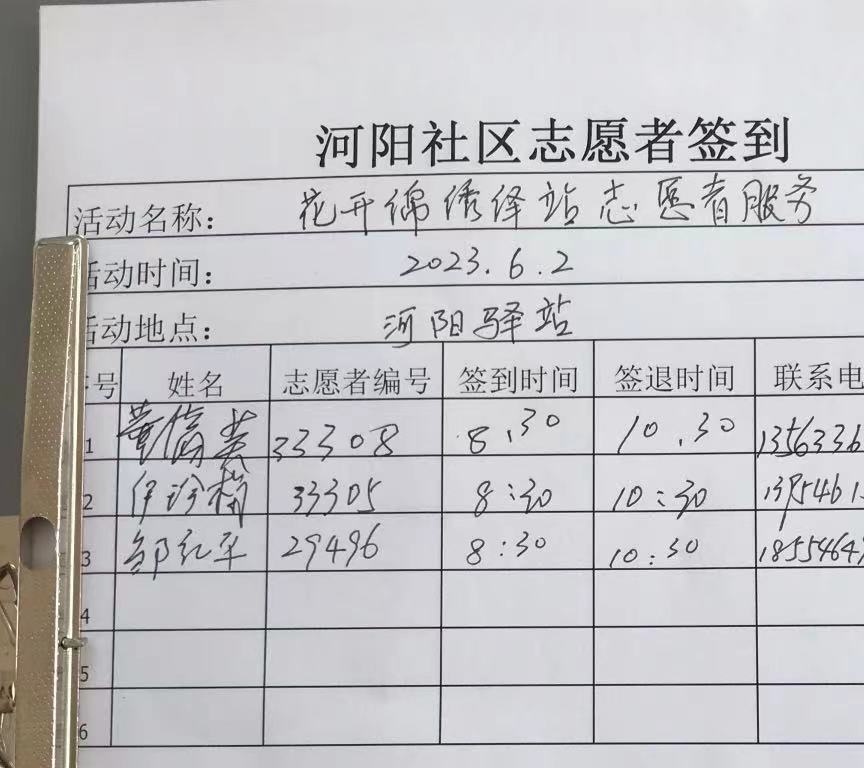 河阳社区志愿者签到
活动名称： 花开绵绣绎站志愿者服务
活动时间： 2023.6.2
活动地点： 河阳驿站
号 姓名 志愿者编号 签到时间 签退时间 联系电
1 33308 8.30 10.30 1356336
2 伊珍梅 33305 8:30 10:30
3 邹红平 29496 8:30 10:30 1855464
4
5
6